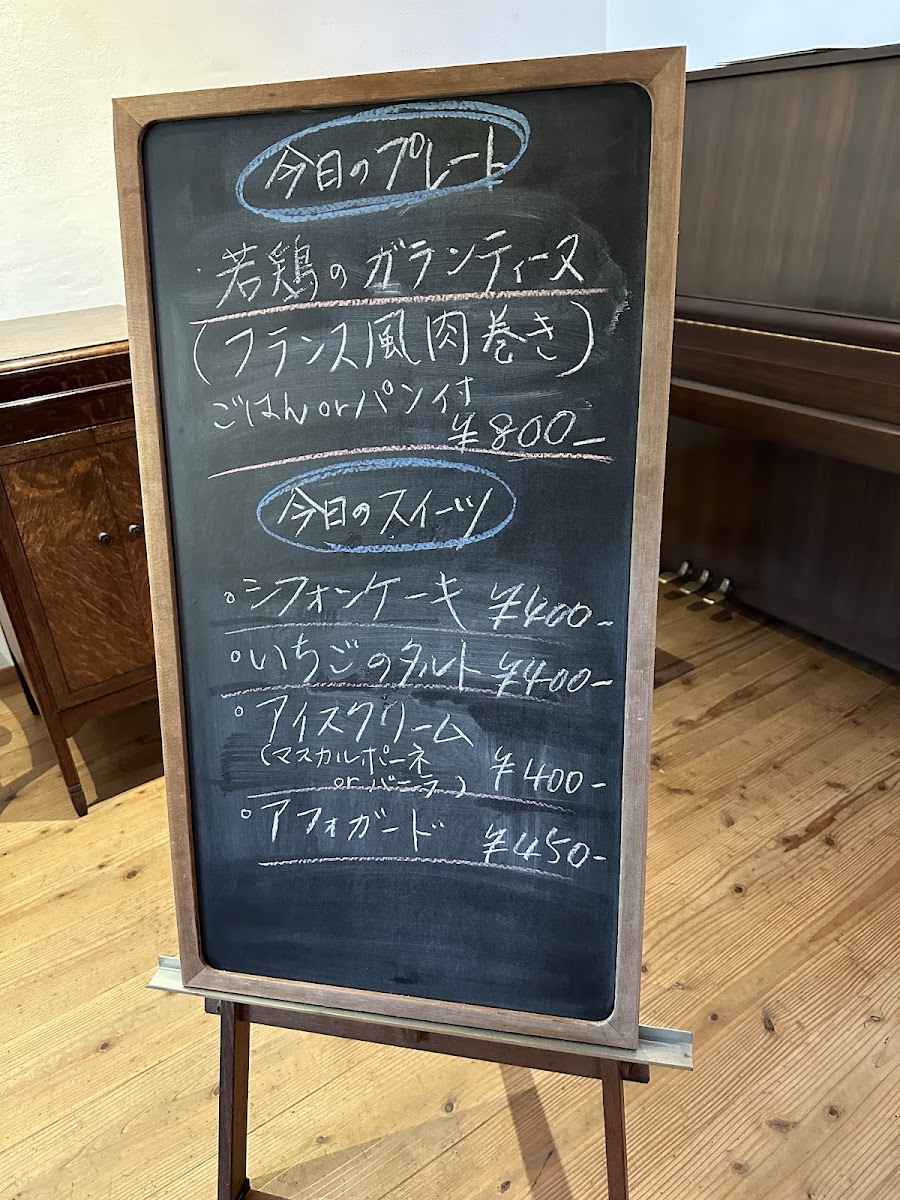 今日のプレート
・若鶏のガランティーヌ
(フランス風肉巻き)
ごはんorパン付
¥800-
今日のスイーツ
○シフォンケーキ ¥400-
○いちごのタルト ¥400-
○アイスクリーム
(マスカルポーネ
orバニラ) ¥400-
○アフォガード ¥450-